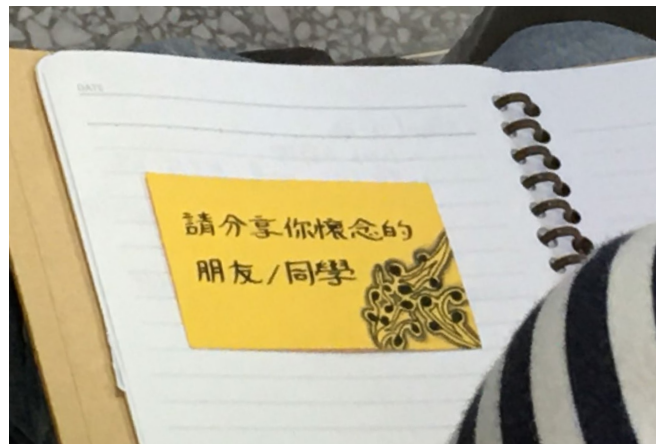 DATE
請分享你懷念的
朋友/同學